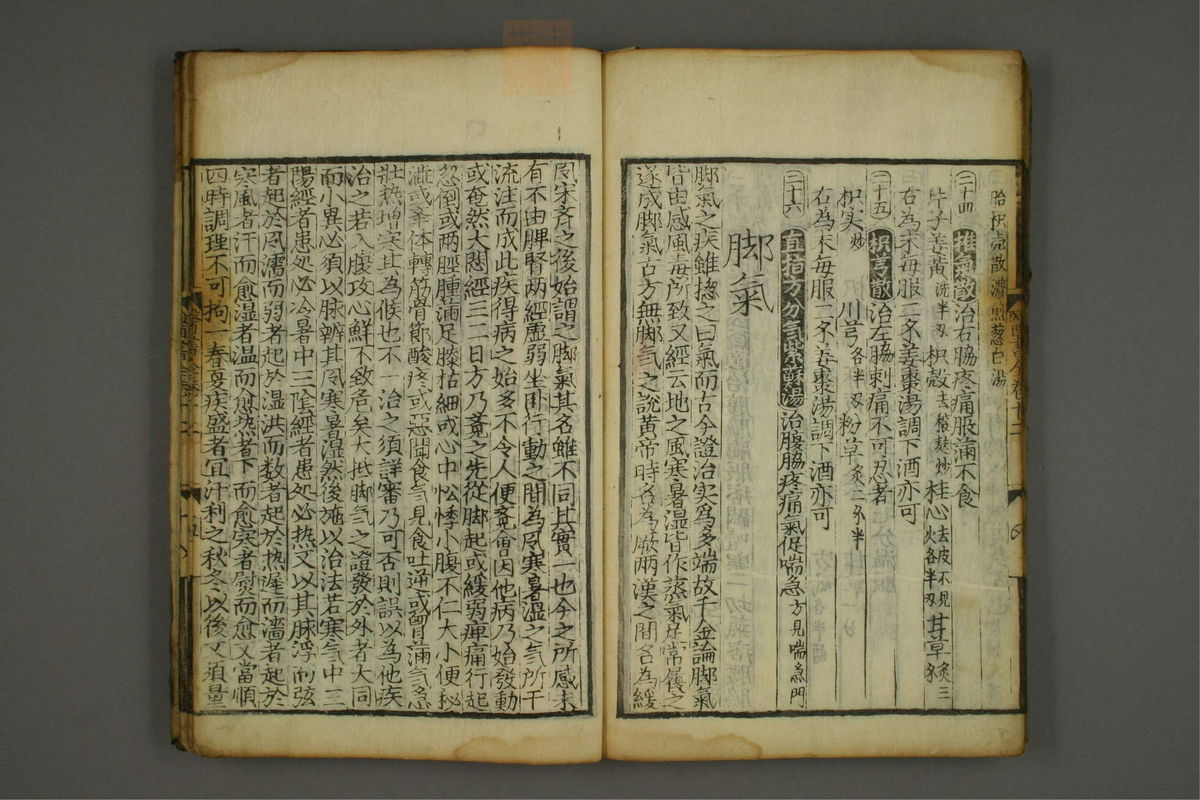 胎枳壳散濃煎葱白湯
二十四 推氣散治右脇疼痛脹滿不食
片子姜黄洗半刄枳殻去穰麩炒桂心去皮不見火各半刄甘草炙三
右為末每服二多姜棗湯調下酒亦可
二十五 枳芎散治左脇刺痛不可忍者
枳实炒川芎各半刄粉草炙二多半
右為末每服二多姜棗湯調下酒亦可
二十六 直指方分气紫蘓湯治腹脇疼痛氣促喘急方見喘急門
脚氣
脚氣之疾雖揔之曰氣而古今證治实為多端故千金論脚氣
皆由感風毒所致又經云地之風寒暑湿皆作蒸氣足常履之
遂成脚氣古方無脚气之說黄帝時名為厥兩漢之間名為緩
風宋齐之後始謂之脚氣其名雖不同其實一也今之所感未
有不由脾腎兩經虛弱坐卧行動之間為風寒暑湿之气所干
流注而成此疾得病之始多不令人便竟會因他病乃始發動
或奄然大悶經三二日方乃竟之先從脚起或緩弱痺痛行起
忽倒或兩脛腫滿足膝枯細或心中忪悸小腹不仁大小便秘
澁或举体轉筋骨節酸疼或惡聞食气見食吐逆或胷滿气急
壯热增寒其為候也不一治之須詳審乃可否則誤以為他疾
治之若入腹攻心鮮不致危矣大抵脚气之證發於外者大同
而小異必須以脉辨其风寒暑湿然後施以治法若寒气中三
陽經者患処必冷暑中三陰經者患処必热又以其脉浮而弦
者起於风濡而弱者起於温洪而数者起於热遅而濇者起於
寒風者汗而愈湿者温而愈热者下而愈寒者熨而愈又當順
四時調理不可拘 春夏疾盛者宜汗利之秋冬以後又須量